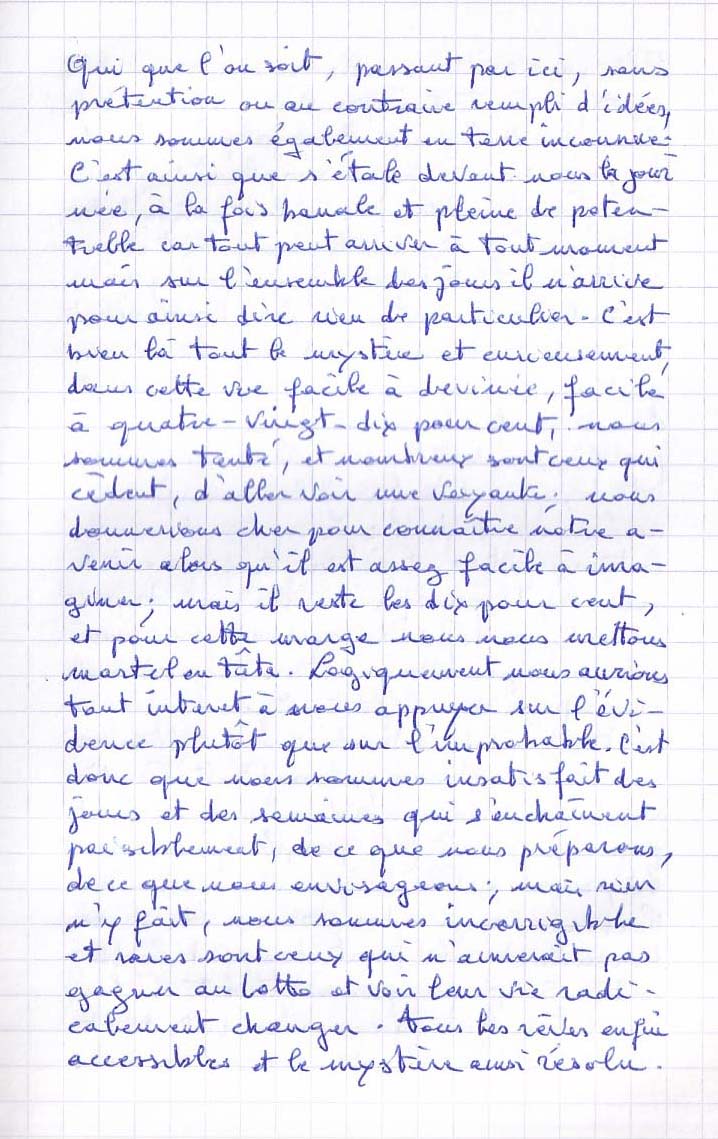 Qui que l'on soit, passant par ici, sans
prétention ou au contraire rempli d'idées,
nous sommes également en terre inconnue.
C'est ainsi que s'étale devant nous la jour
née, à la fois banale et pleine de poten-
tielle car tout peut arriver à tout moment
mais sur l'ensemble des jours il n'arrive
pour ainsi dire rien de particulier. C'est
bien là tout le mystère et curieusement,
dans cette vie facile à devinée, facile
à quatre-vingt-dix pour cent, nous
sommes tenté, et nombreux sont ceux qui
cèdent, d'aller voir une voyante. nous
donnerions cher pour connaître nôtre a-
venir alors qu'il est assez facile à ima-
giner; mais il reste les dix pour cent,
et pour cette marge nous nous mettons
martel en tête. Logiquement nous aurions
tout interet à nous appuyer sur l'évi-
dence plutôt que sur l'improbable. C'est
donc que nous sommes insatisfait des
jours et des semaines qui s'enchaînent
paisiblement, de ce que nous préparons,
de ce que nous envisageons; mais rien
n'y fait, nous sommes incorrigible
et rares sont ceux qui n'aimerait pas
gagner au lotto et voir leur vie radi-
calement changer. tous les rêves enfin
accessibles et le mystère ainsi résolu.